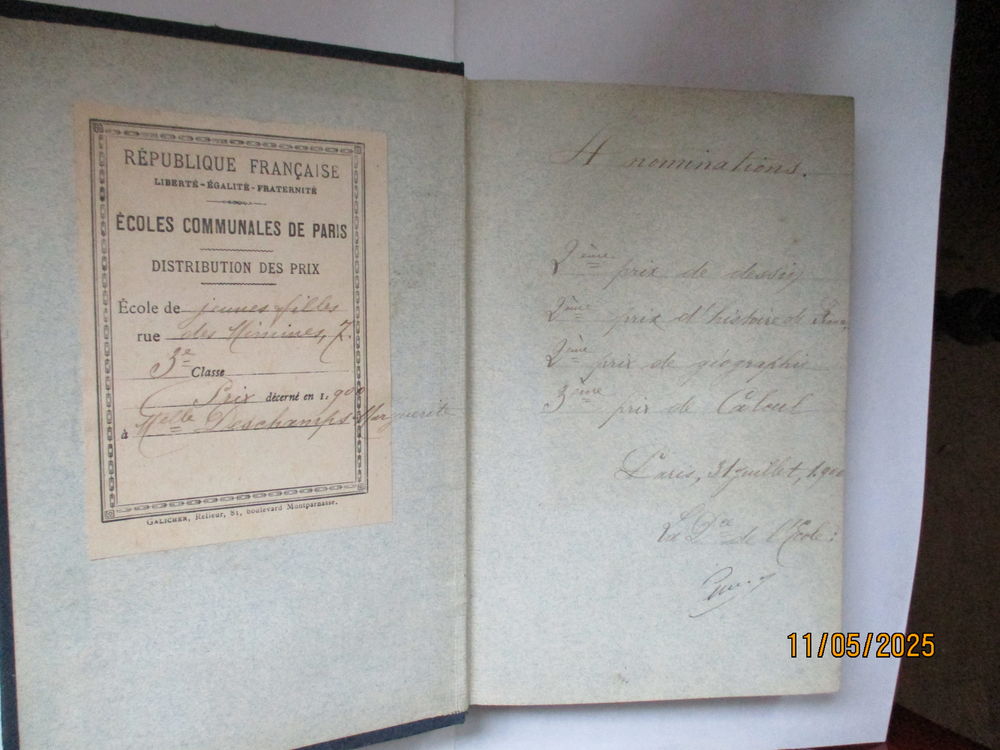 RÉPUBLIQUE FRANÇAISE
LIBERTÉ-ÉGALITÉ-FRATERNITÉ
ÉCOLES COMMUNALES DE PARIS
DISTRIBUTION DES PRIX
École de jeunes filles
rue des Minimes, 7.
3e Classe
Prix décerné en 1.900
à Melle Deschamps Marguerite
GALICHER, Relieur, 81, boulevard Montparnasse.
4 nominations.
2ème prix de dessin
2ème prix d'histoire de
2ème prix de géographie
3ème prix de Calcul
Paris, 31 juillet, 1.900
La Dce de l'École :
11/05/2025